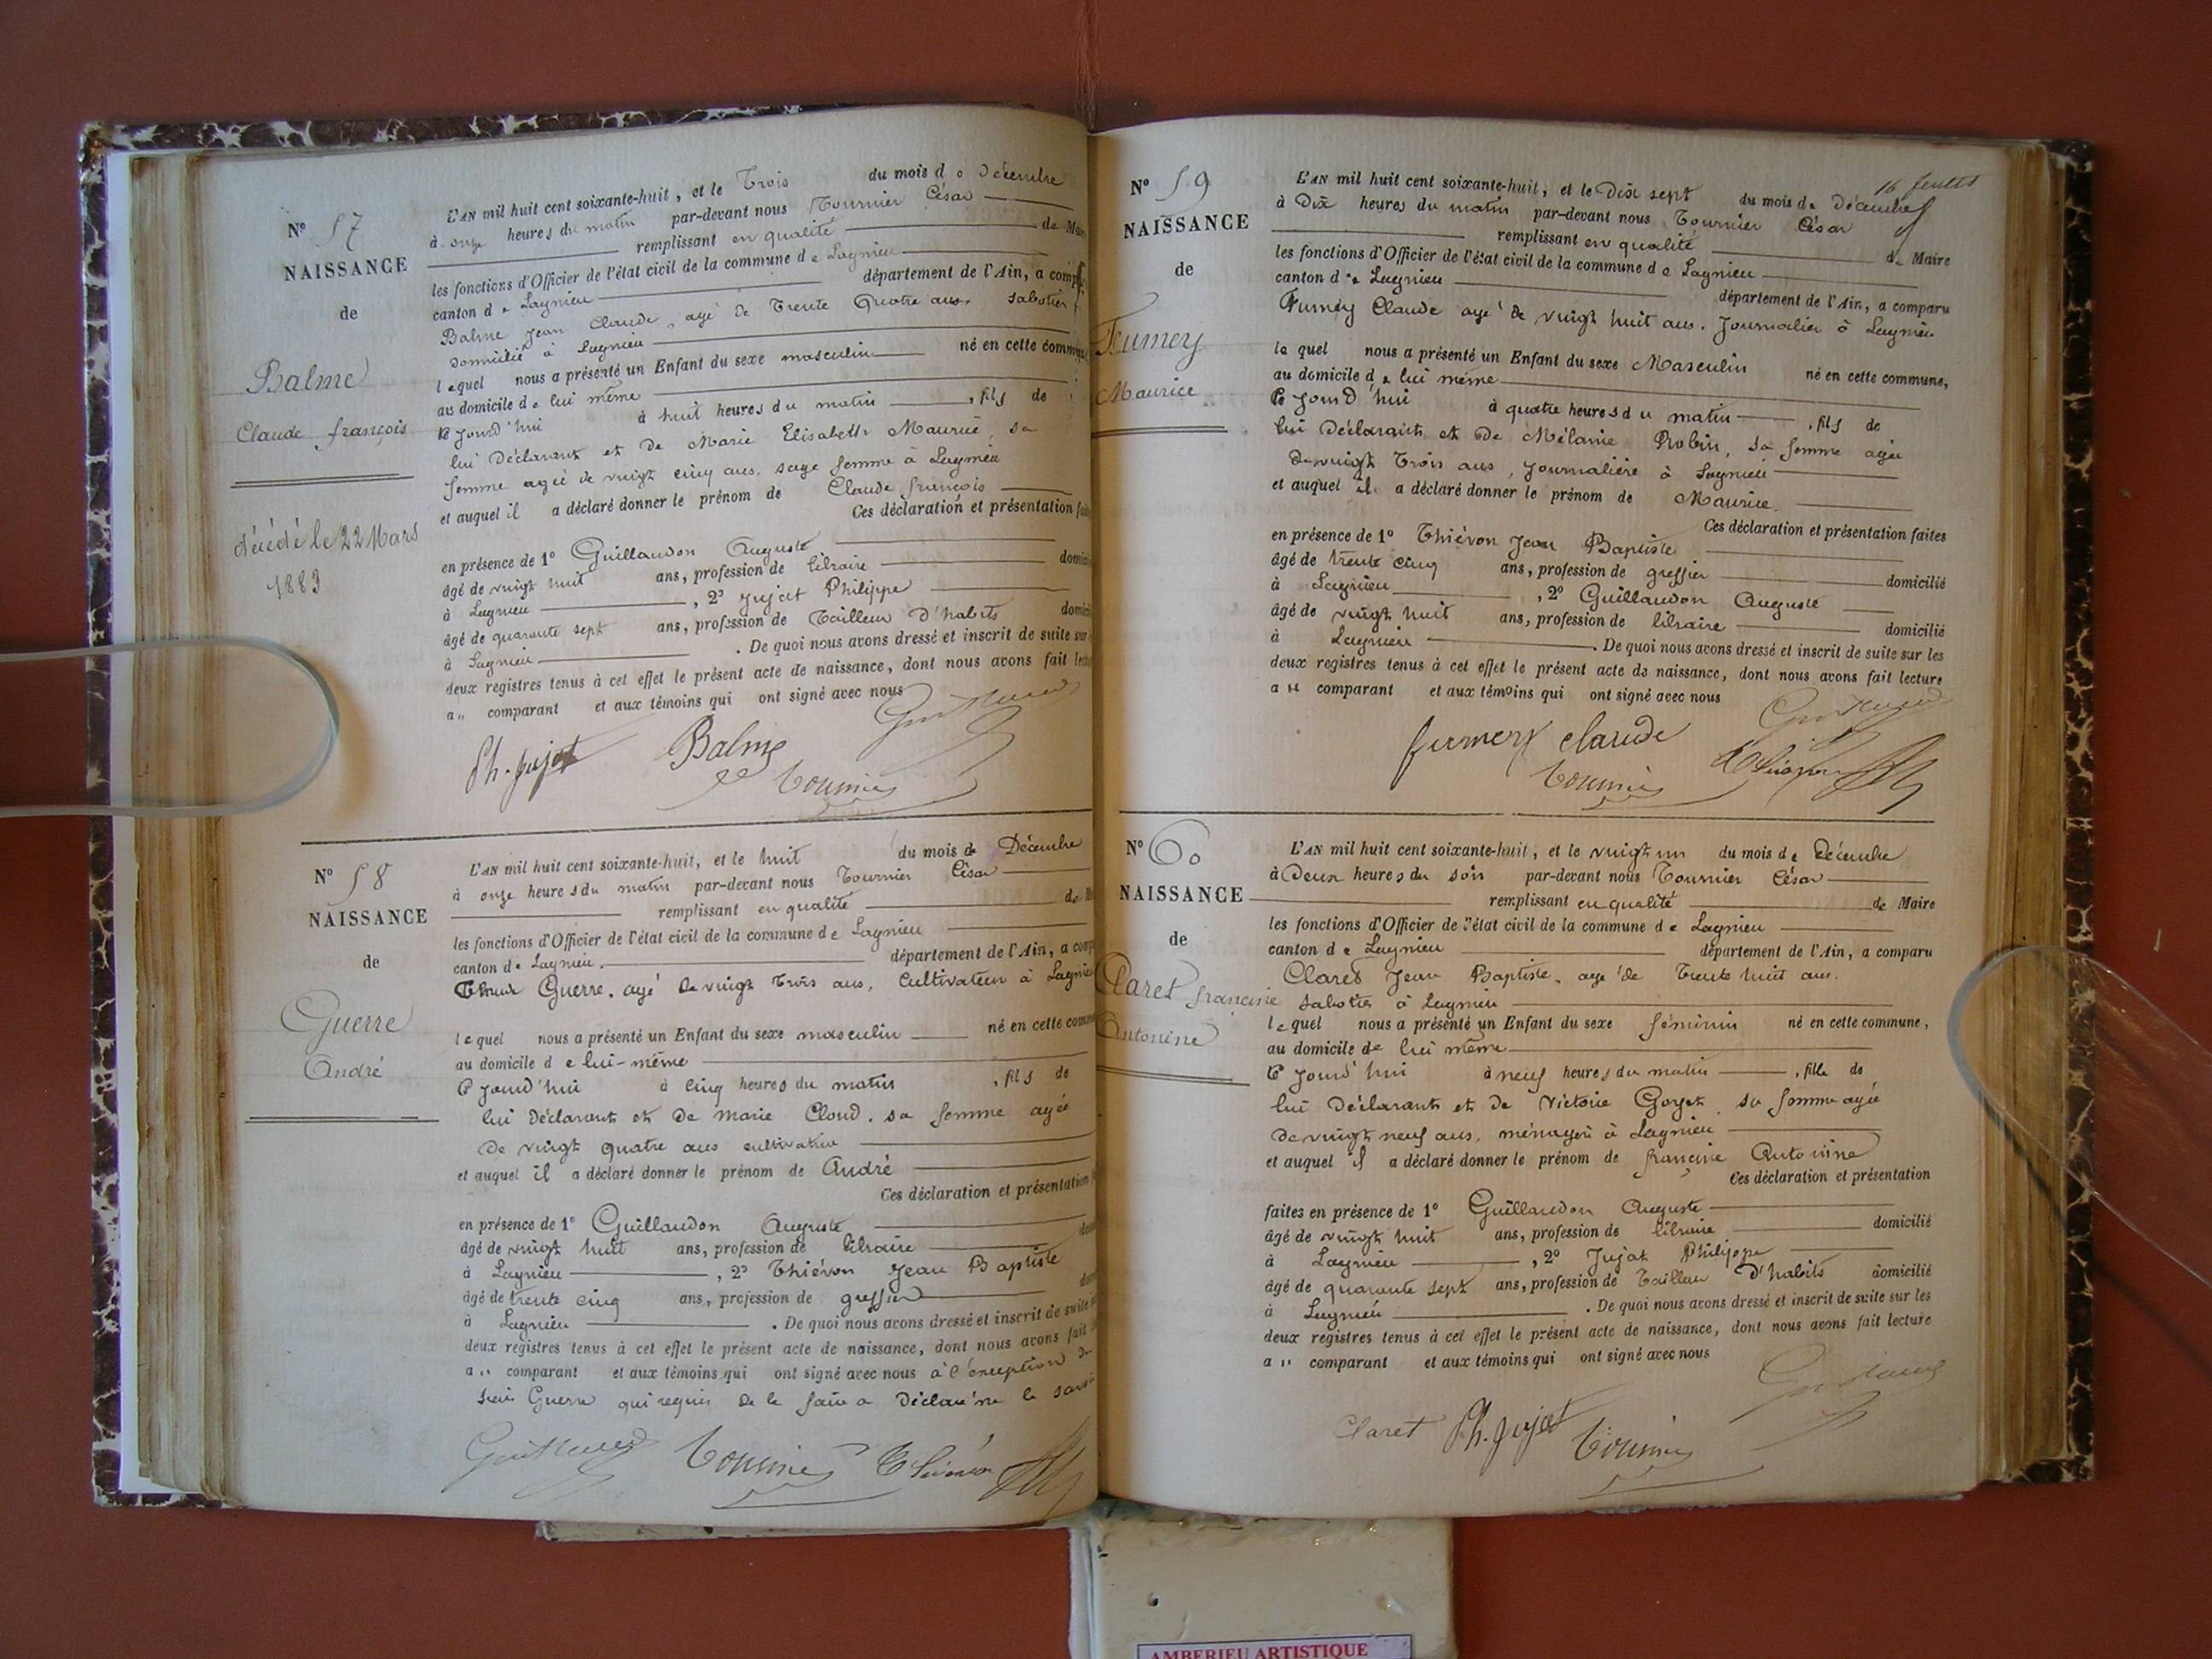 No 57
NAISSANCE
de
Balme
Claude françois
décédé le 22 Mars
1883
L'AN mil huit cent soixante-huit, et le Trois du mois de Décembre
à onze heures du matin par-devant nous Tournier César
remplissant en qualité de
les fonctions d'Officier de l'état civil de la commune de Lagnieu
canton de Lagnieu département de l'Ain, a
Balme Jean Claude, agé de Trente Quatre ans. Sabotier
domicilié à Lagnieu
lequel nous a présenté un Enfant du sexe masculin né en cette
au domicile de lui même
ce jourd'hui à huit heures du matin, fils de
lui Déclarant et de Marie Elisabeth Maurice, sa
femme agée de vingt cinq ans, sage femme à Lagnieu
et auquel il a déclaré donner le prénom de Claude françois
Ces déclaration et présentation
en présence de 1° Guillaudon Auguste
âgé de vingt huit ans, profession de libraire
à Lagnieu, 2° Jujat Philippe
âgé de quarante sept ans, profession de Tailleur D'habits
à Lagnieu. De quoi nous avons dressé et inscrit de suite sur
deux registres tenus à cet effet le présent acte de naissance, dont nous avons fait
au comparant et aux témoins qui ont signé avec nous
Ph. Jujat Balme
Tournier
No 58
NAISSANCE
de
Guerre
André
L'AN mil huit cent soixante-huit, et le huit du mois de Décembre
à onze heures du matin par-devant nous Tournier César
remplissant en qualité de
les fonctions d'Officier de l'état civil de la commune de Lagnieu
canton de Lagnieu. département de l'Ain, a
Guerre, agé de vingt Trois ans, Cultivateur à
lequel nous a présenté un Enfant du sexe masculin né en cette
au domicile de lui-même
ce jourd'hui à cinq heures du matin, fils de
lui Déclarant et de Marie Cloud, sa femme agée
de vingt quatre ans
et auquel il a déclaré donner le prénom de André
Ces déclaration et présentation
en présence de 1° Guillaudon Auguste
âgé de vingt huit ans, profession de libraire
à Lagnieu, 2° Thiévon Jean Baptiste
âgé de trente cinq ans, profession de greffier
à Lagnieu. De quoi nous avons dressé et inscrit de suite
deux registres tenus à cet effet le présent acte de naissance, dont nous avons fait
au comparant et aux témoins qui ont signé avec nous à l'exception
Guerre qui requis de le faire a Déclaré ne le
Tournier Thiévon
No 59
NAISSANCE
de
Fumey
Maurice
16 feuillet
L'AN mil huit cent soixante-huit, et le Dix sept du mois de Décembre
à Dix heures du matin par-devant nous Tournier César
remplissant en qualité de Maire
les fonctions d'Officier de l'état civil de la commune de Lagnieu
canton de Lagnieu département de l'Ain, a comparu
Fumey Claude agé de vingt huit ans. Journalier à Lagnieu
lequel nous a présenté un Enfant du sexe Masculin né en cette commune,
au domicile de lui même
ce jourd'hui à quatre heures du matin, fils de
lui Déclarant et de Mélanie Robin, sa femme agée
de vingt Trois ans, Journalière à Lagnieu
et auquel il a déclaré donner le prénom de Maurice.
Ces déclaration et présentation faites
en présence de 1° Thiévon Jean Baptiste
âgé de trente cinq ans, profession de greffier domicilié
à Lagnieu, 2° Guillaudon Auguste
âgé de vingt huit ans, profession de libraire domicilié
à Lagnieu. De quoi nous avons dressé et inscrit de suite sur les
deux registres tenus à cet effet le présent acte de naissance, dont nous avons fait lecture
au comparant et aux témoins qui ont signé avec nous
fumey claude
Tournier
No 60
NAISSANCE
de
Claret francine
Antonine
L'AN mil huit cent soixante-huit, et le vingt un du mois de Décembre
à Deux heures du soir par-devant nous Tournier César
remplissant en qualité de Maire
les fonctions d'Officier de l'état civil de la commune de Lagnieu
canton de Lagnieu département de l'Ain, a comparu
Claret Jean Baptiste, agé de Trente huit ans.
Sabotier à Lagnieu
lequel nous a présenté un Enfant du sexe féminin né en cette commune,
au domicile de lui même
ce jourd'hui à neuf heures du matin, fille de
lui Déclarant et de Victoire Goyet, sa femme agée
de vingt neuf ans, ménagère à Lagnieu
et auquel il a déclaré donner le prénom de francine Antonine
Ces déclaration et présentation
faites en présence de 1° Guillaudon Auguste
âgé de vingt huit ans, profession de libraire domicilié
à Lagnieu, 2° Jujat Philippe
âgé de quarante sept ans, profession de Tailleur D'habits domicilié
à Lagnieu. De quoi nous avons dressé et inscrit de suite sur les
deux registres tenus à cet effet le présent acte de naissance, dont nous avons fait lecture
au comparant et aux témoins qui ont signé avec nous
Claret Ph. Jujat Tournier
AMBERIEU ARTISTIQUE